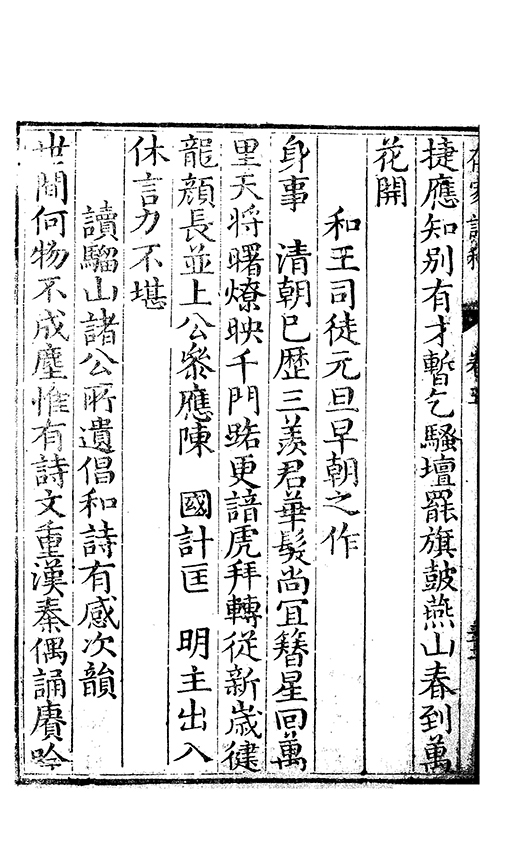 捷應知別有才暫乞騷壇罷旗鼓燕山春到萬
花開
和王司徒元旦早朝之作
身事　清朝已歷三羨君華髮尚宜簪星回萬
里天將曙燎映千門踏更諳虎拜轉從新歲健
龍顏長並上公叅應陳　國計匡　明主出入
休言力不堪
讀騮山諸公所遺倡和詩有感次韻
世間何物不成塵惟有詩文重漢秦偶誦賡吟